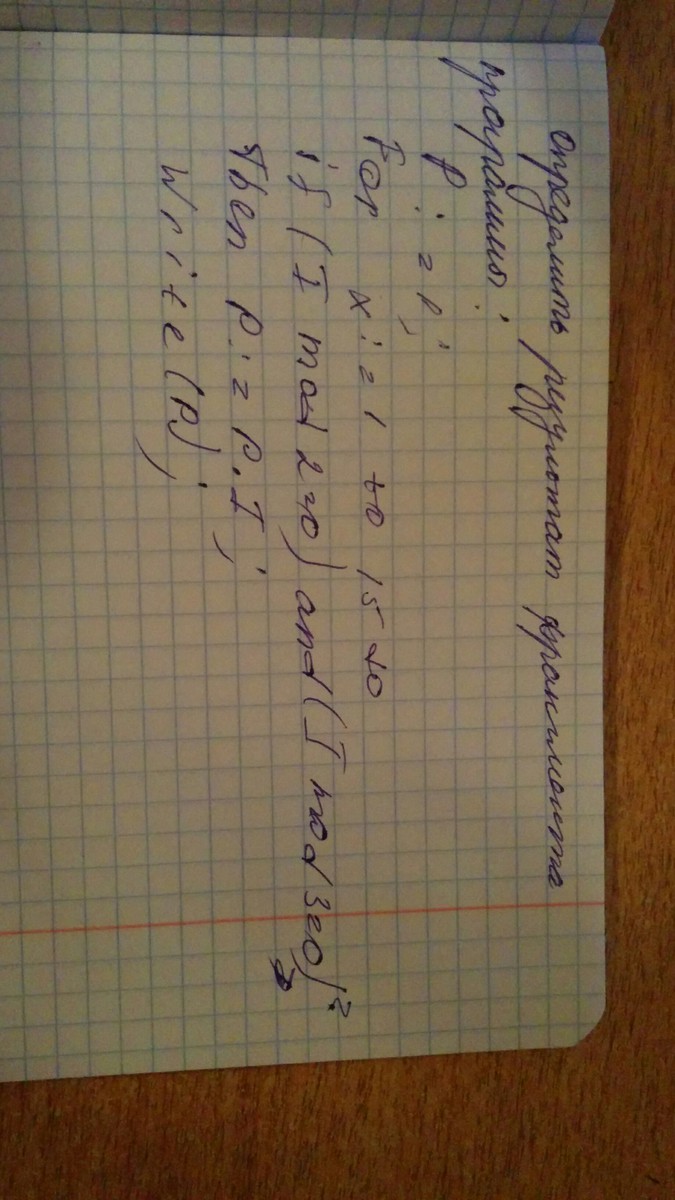 Определить результат фрагмента
программы:
P:=P;
For x:=1 to 15 do
if (I mod 2=0) and (I mod 3=0)
Then P:=P.I;
Write(P);